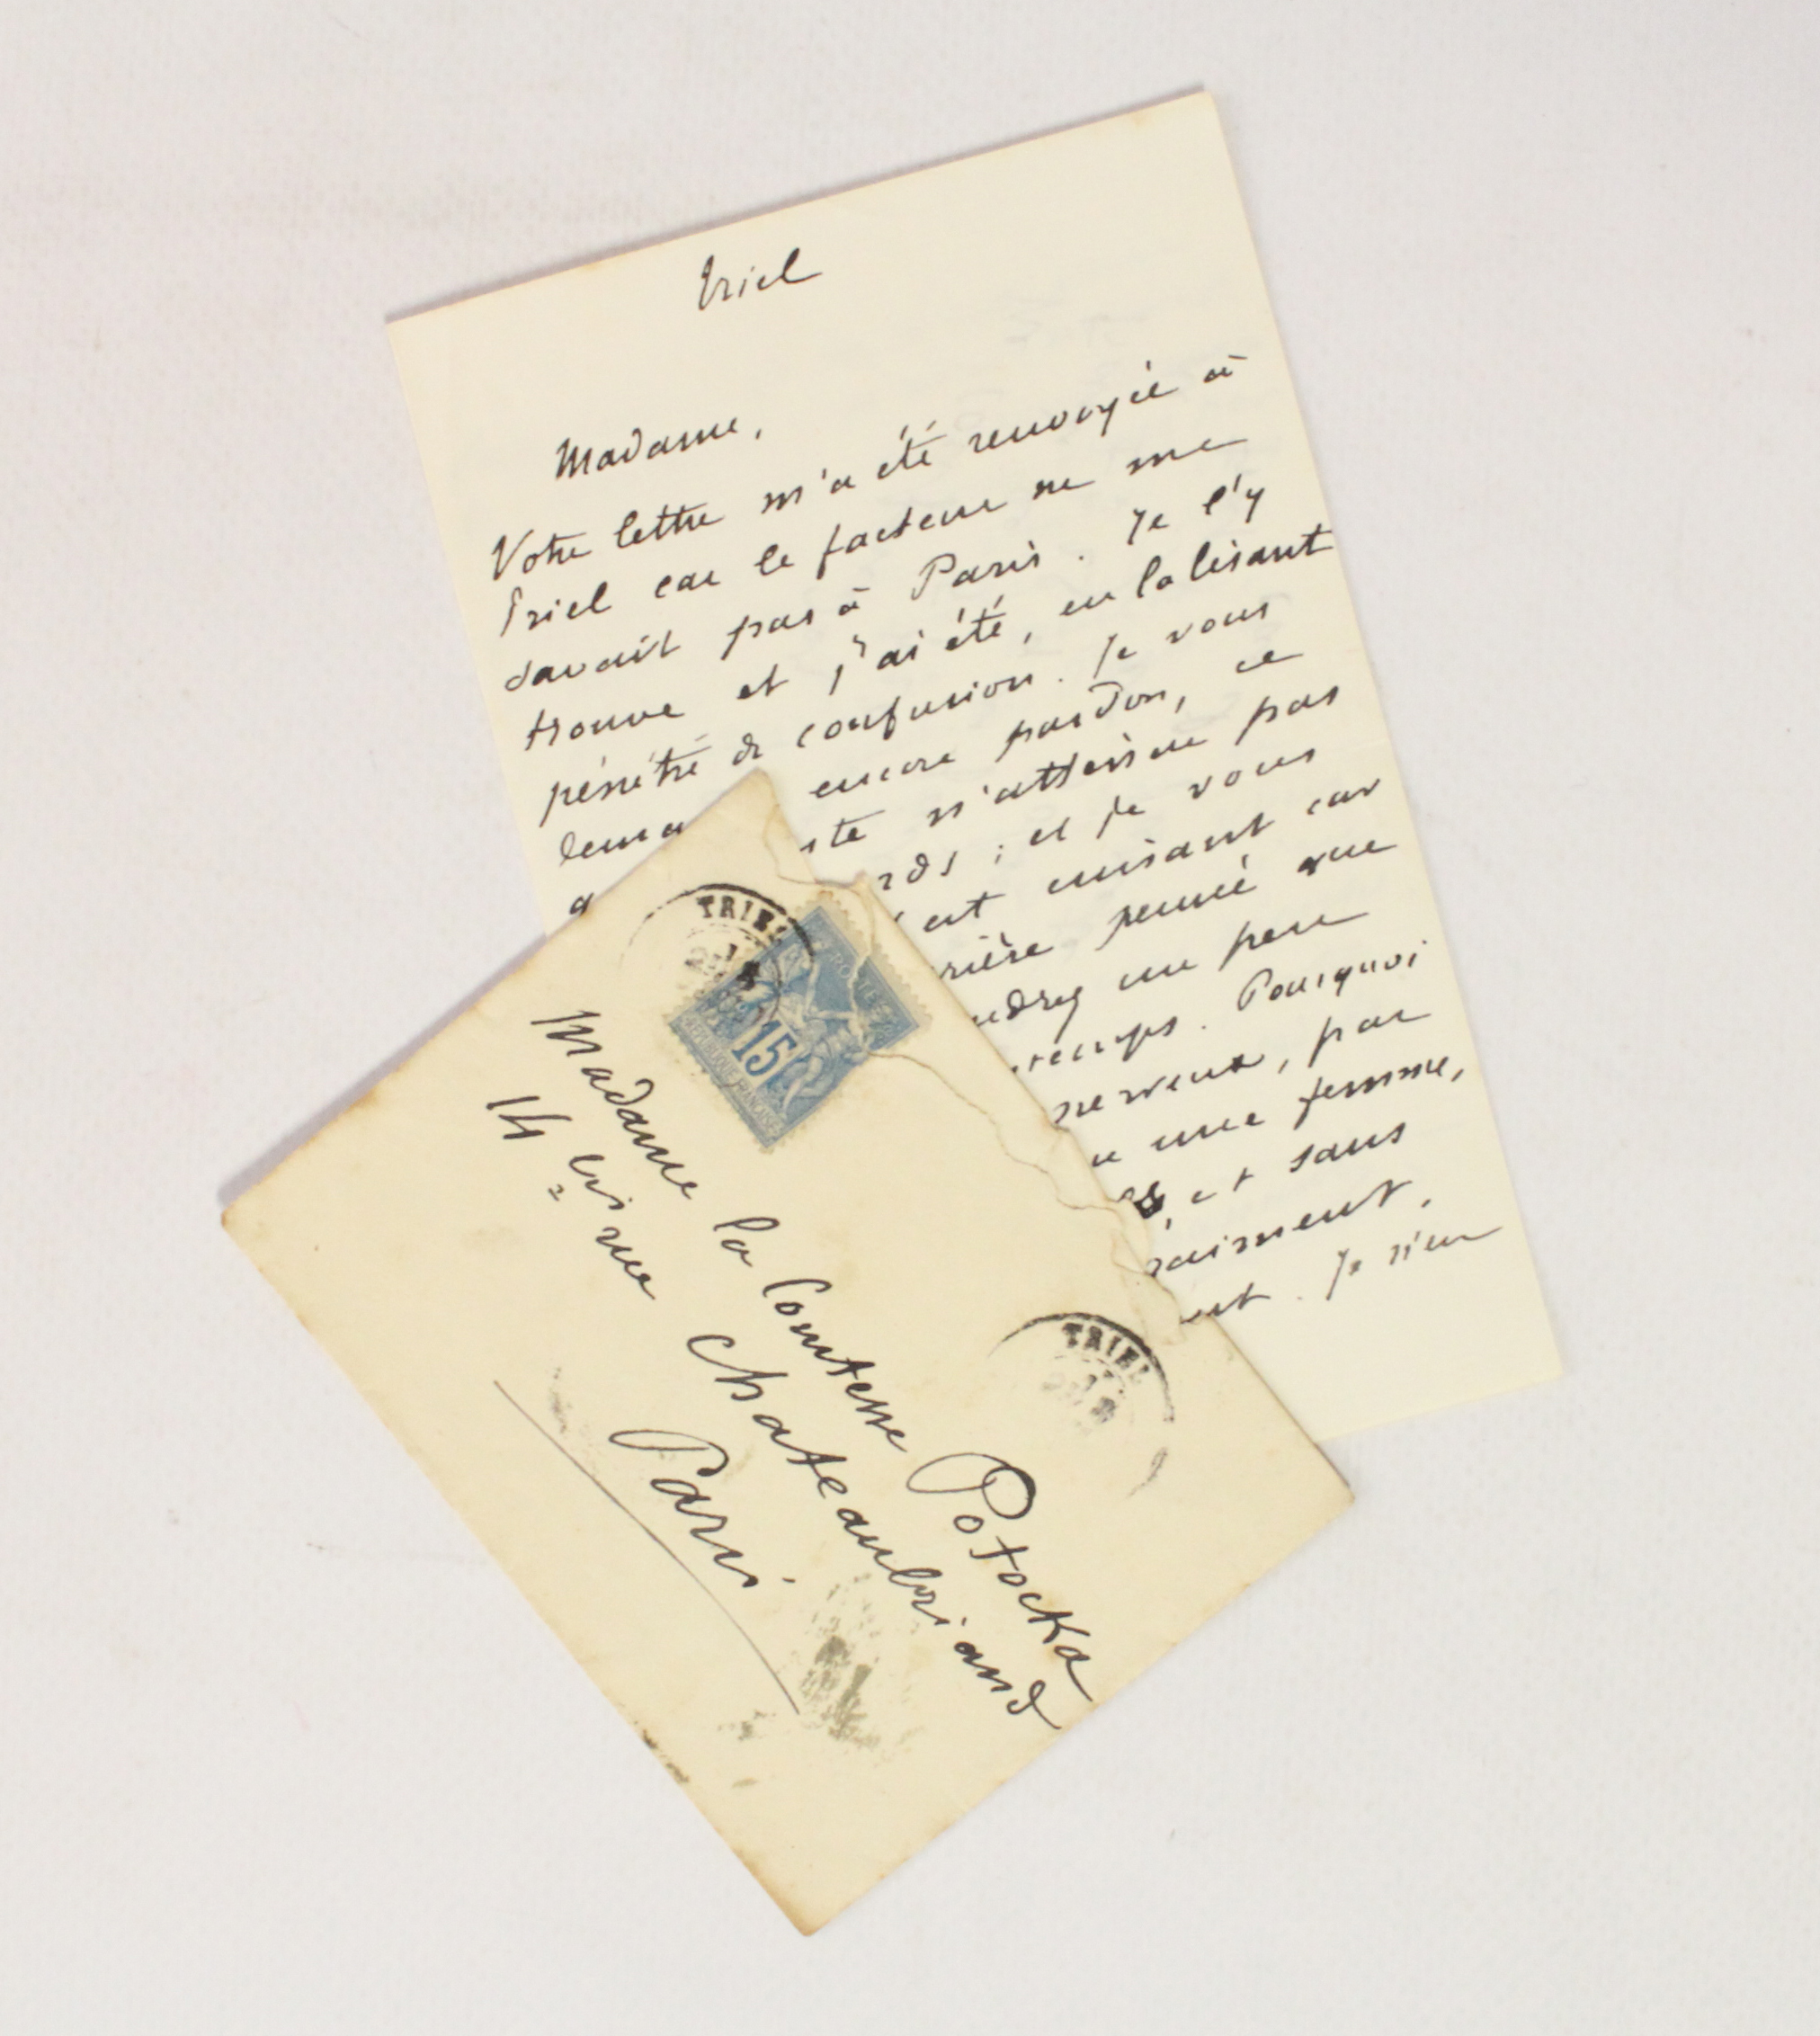 Triel
Madame,
Votre lettre m'a été renvoyée à
Triel car le facteur ne me
savait pas à Paris. Je l'y
trouve et j'ai été, en la lisant
pénétré de confusion. Je vous
encore pardon, ce
n'attenue pas
; et je vous
est cuisant car
pensée que
un peu
. Pourquoi
nerveux, par
une femme,
, et sans
.
. Je n'en
TRIEL
POSTES
15
REPUBLIQUE FRANÇAISE
Madame la Comtesse Potocka
14 bis rue Chateaubriand
Paris.
TRIEL